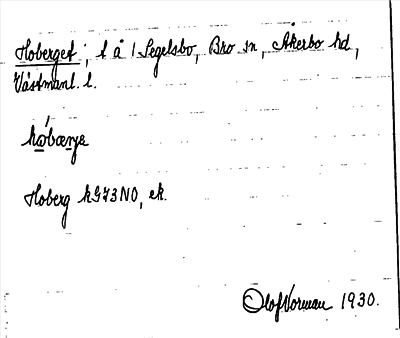 Hoberget, t å 1 Segelsbo, Bro sn, Åkerbo hd,
Västmanl. l.
Hoberg kG73NO, ek.
Olof Vorman 1930.